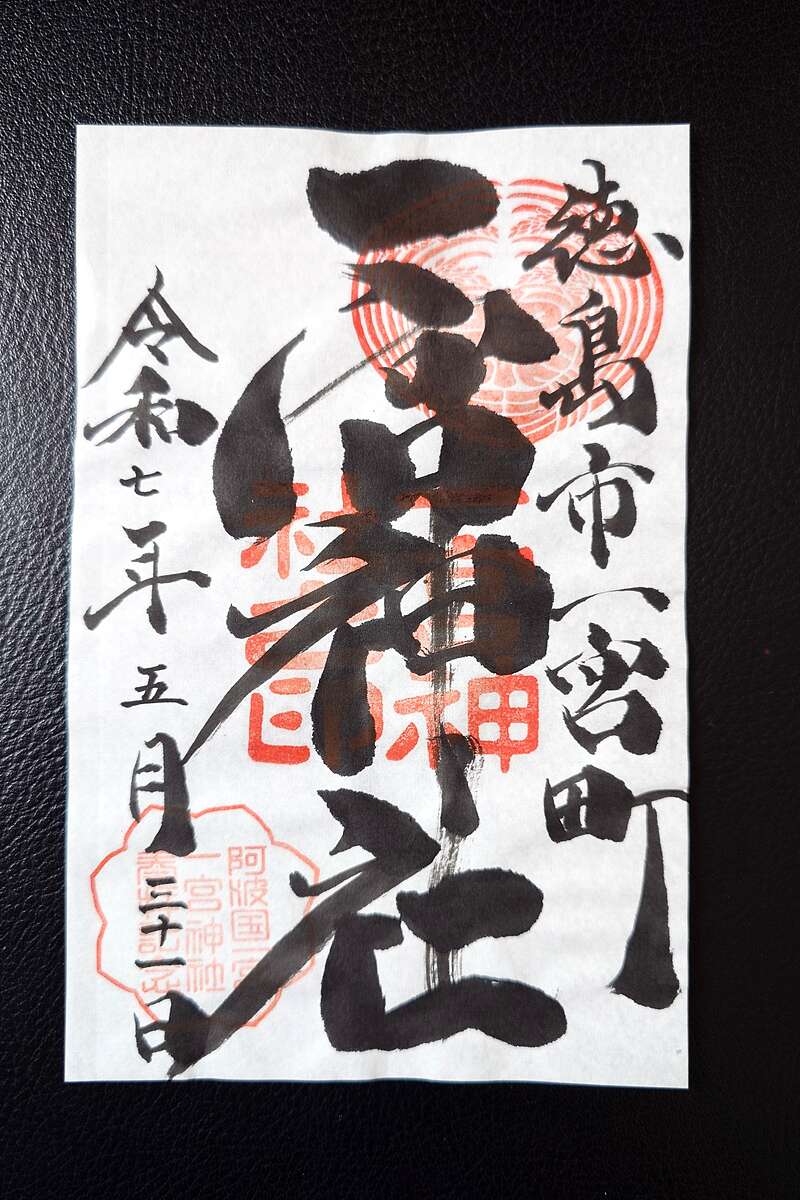 徳島市一宮町
一宮神社
令和七年五月三十一日
一宮神
社之印
阿波国一宮
一宮神社
参拝記念